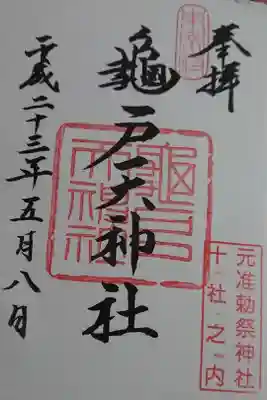 奉拝
龜戸天神社
平成二十三年五月八日
元准勅祭神社
十社之内
龜戸天神社